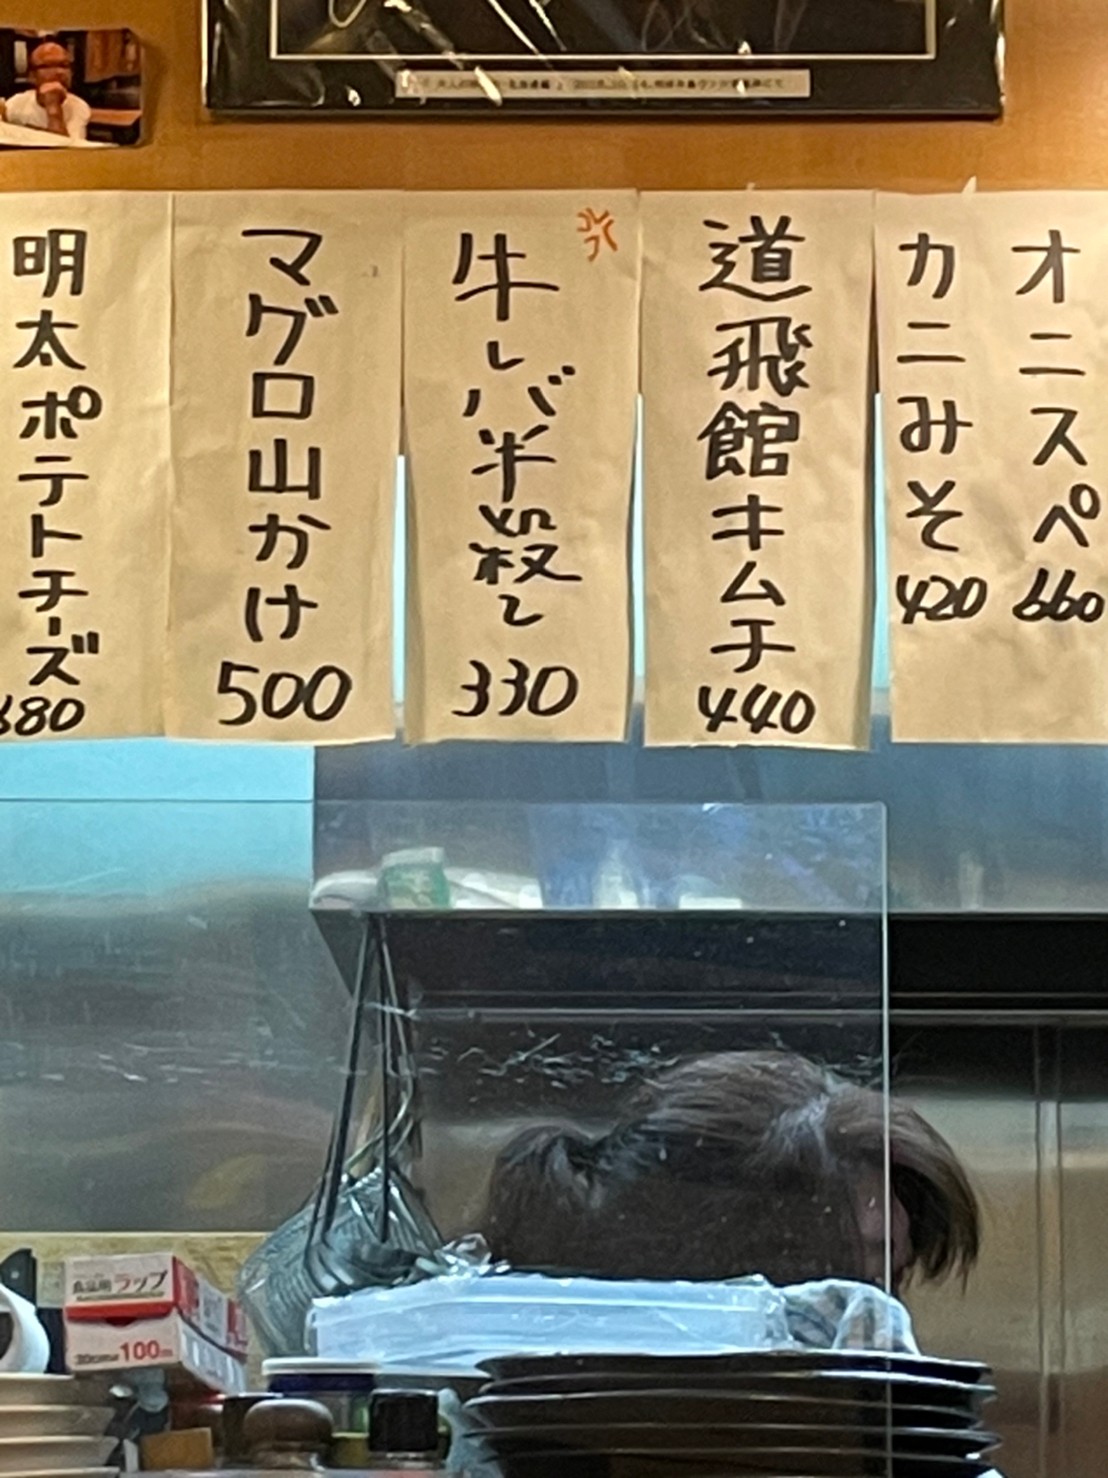 オニスペ
660
カニみそ
420
道飛館キムチ
440
牛レバ半殺し
330
マグロ山かけ
500
明太ポテトチーズ
680
食品用ラップ
100m